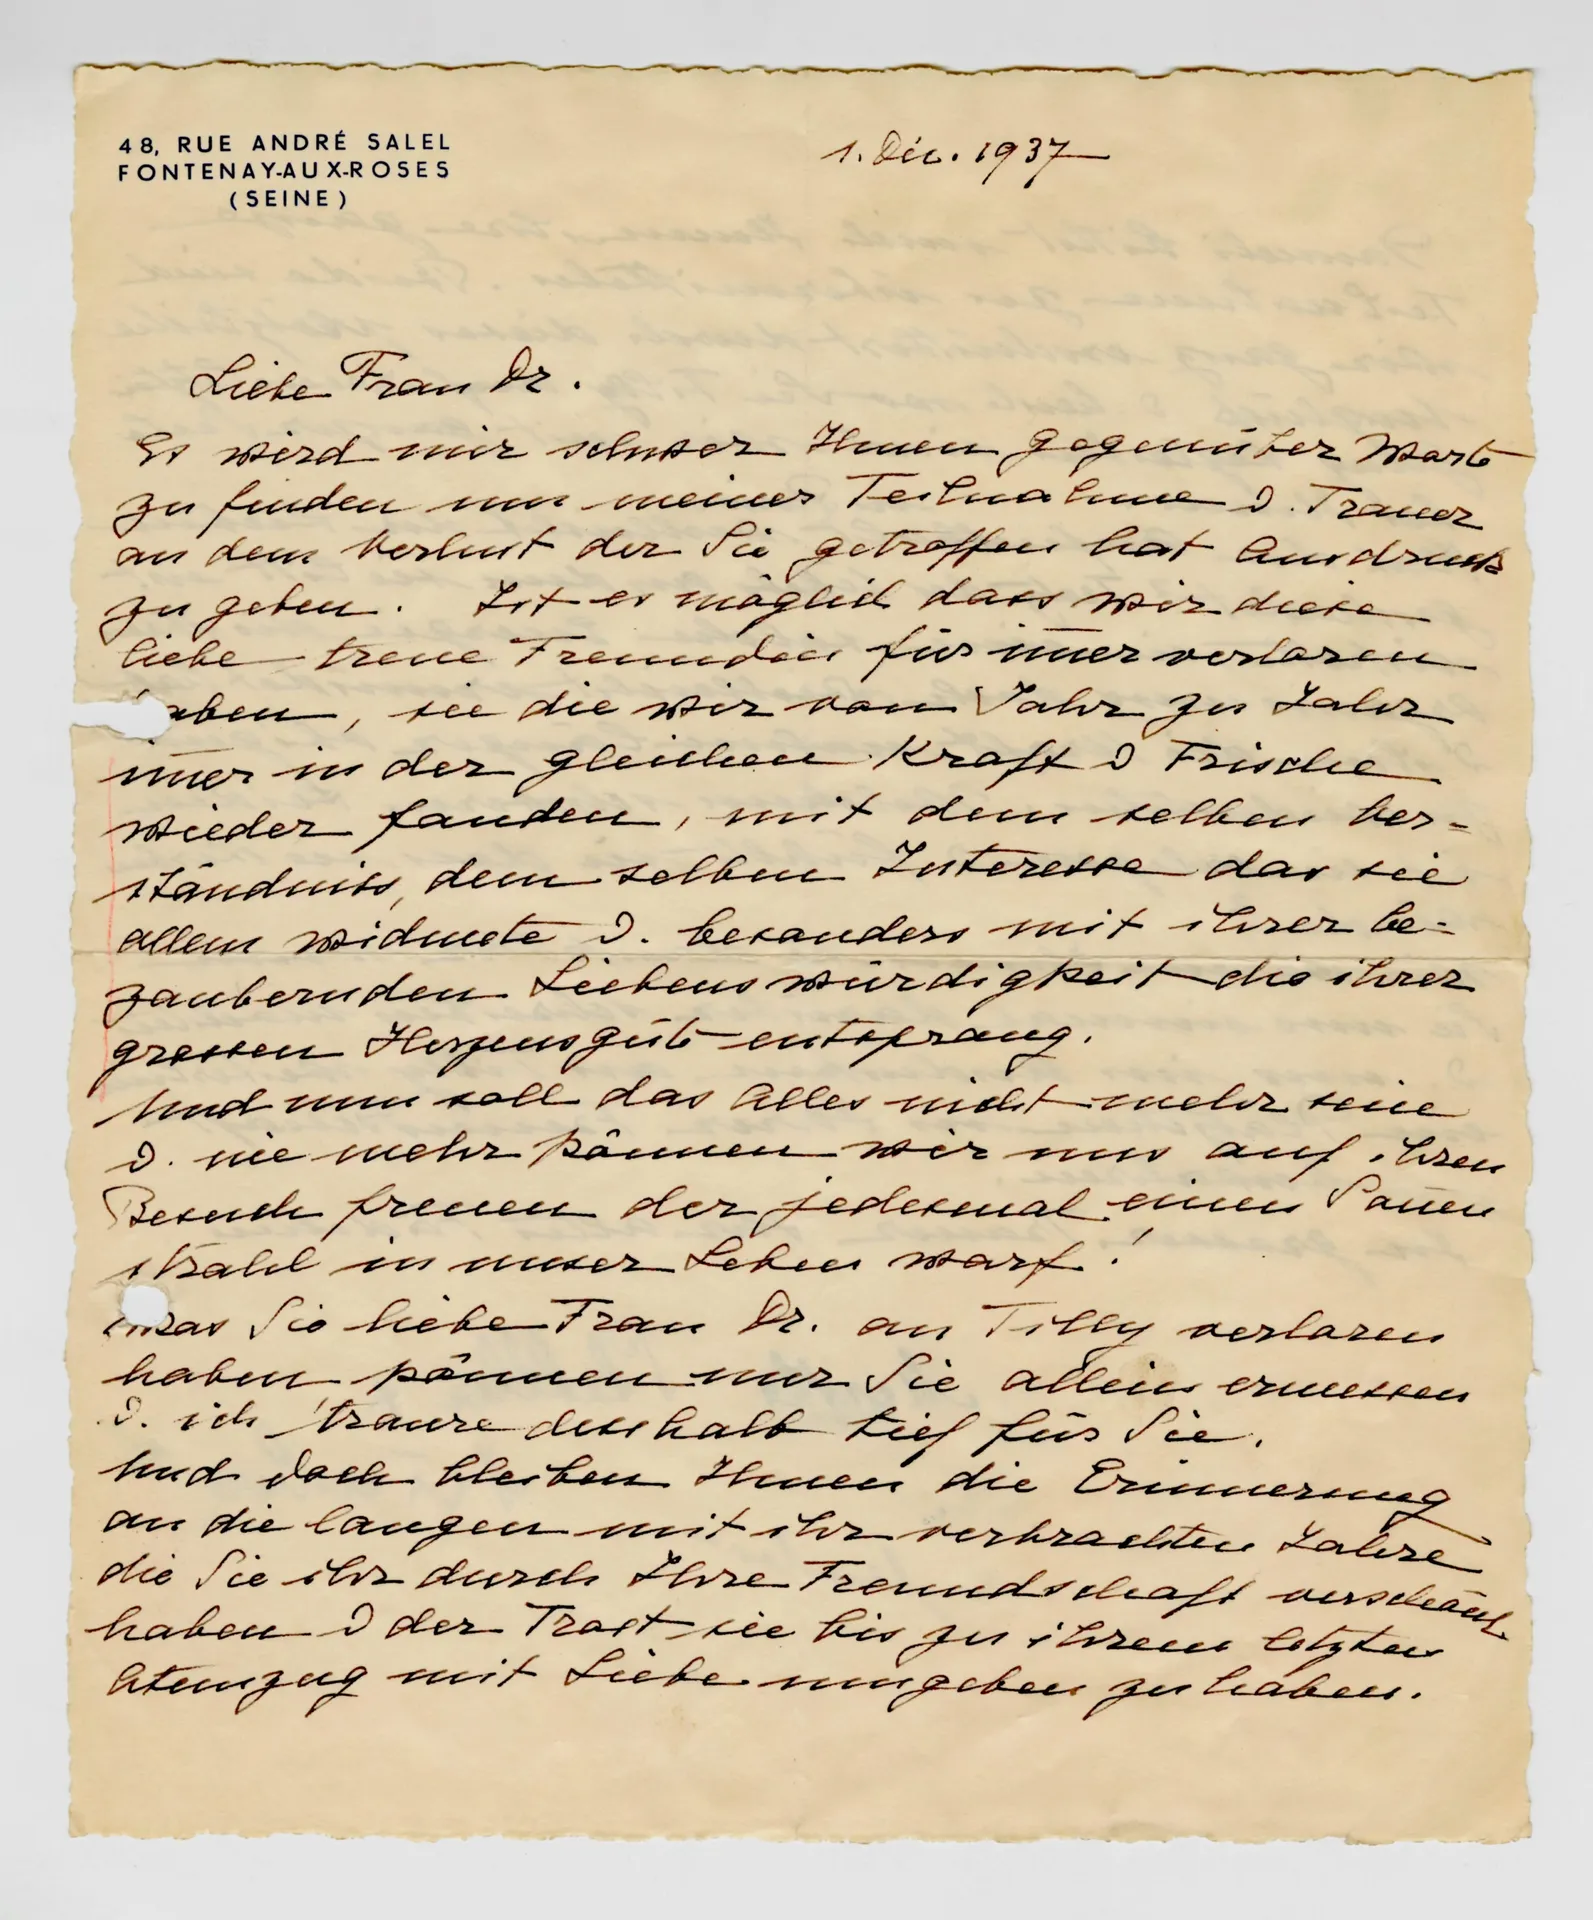 48, RUE ANDRÉ SALEL
FONTENAY-AUX-ROSES
(SEINE)
1. Déc. 1937
Liebe Frau Dr.
Es wird mir schwer Ihnen gegenüber Worte
zu finden um meiner Teilnahme u. Trauer
an dem Verlust der Sie getroffen hat Ausdruck
zu geben. Ist es möglich dass wir diese
liebe treue Freundin für im̅er verloren
haben, sie die wir von Jahr zu Jahr
im̅er in der gleichen Kraft u Frische
wieder fanden, mit dem selben Ver-
ständniss, dem selben Interesse das sie
allem widmete u. besonders mit ihrer be-
zaubernden Liebenswürdigkeit die ihrer
grossen Herzensgüte entsprang.
Und nun soll das Alles nicht mehr sein
u. nie mehr können wir uns auf ihren
Besuch freuen der jedesmal einen Son̅en
strahl in unser Leben warf!
Was Sie liebe Frau Dr. an Tilly verloren
haben können nur Sie allein ermessen
u. ich traure desshalb tief für Sie.
Und doch bleiben Ihnen die Erinnerung
an die langen mit ihr verbrachten Jahre
die Sie ihr durch Ihre Freundschaft verschönt
haben u der Trost sie bis zu ihrem letzten
Atemzug mit Liebe umgeben zu haben.